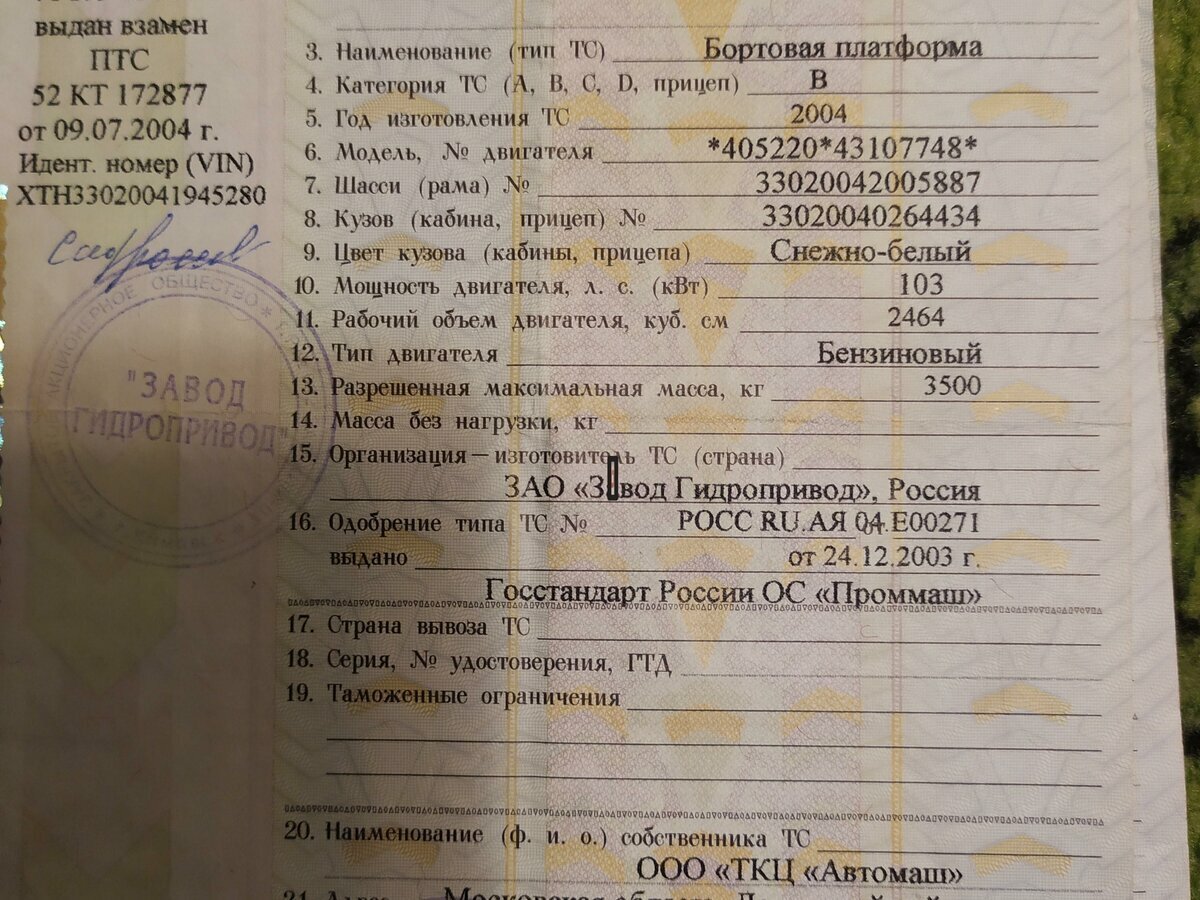 выдан взамен
ПТС
52 КТ 172877
от 09.07.2004 г.
Идент. номер (VIN)
ХТН33020041945280
АКЦИОНЕРНОЕ ОБЩЕСТВО
"ЗАВОД
ГИДРОПРИВОД"
3. Наименование (тип ТС) Бортовая платформа
4. Категория ТС (A, B, C, D, прицеп) В
5. Год изготовления ТС 2004
6. Модель, № двигателя *405220*43107748*
7. Шасси (рама) № 33020042005887
8. Кузов (кабина, прицеп) № 33020040264434
9. Цвет кузова (кабины, прицепа) Снежно-белый
10. Мощность двигателя, л. с. (кВт) 103
11. Рабочий объем двигателя, куб. см 2464
12. Тип двигателя Бензиновый
13. Разрешенная максимальная масса, кг 3500
14. Масса без нагрузки, кг
15. Организация — изготовитель ТС (страна)
ЗАО «Завод Гидропривод», Россия
16. Одобрение типа ТС № РОСС RU.АЯ 04.Е00271
выдано от 24.12.2003 г.
Госстандарт России ОС «Проммаш»
17. Страна вывоза ТС
18. Серия, № удостоверения, ГТД
19. Таможенные ограничения
20. Наименование (ф. и. о.) собственника ТС
ООО «ТКЦ «Автомаш»
21. Адрес Московская область,